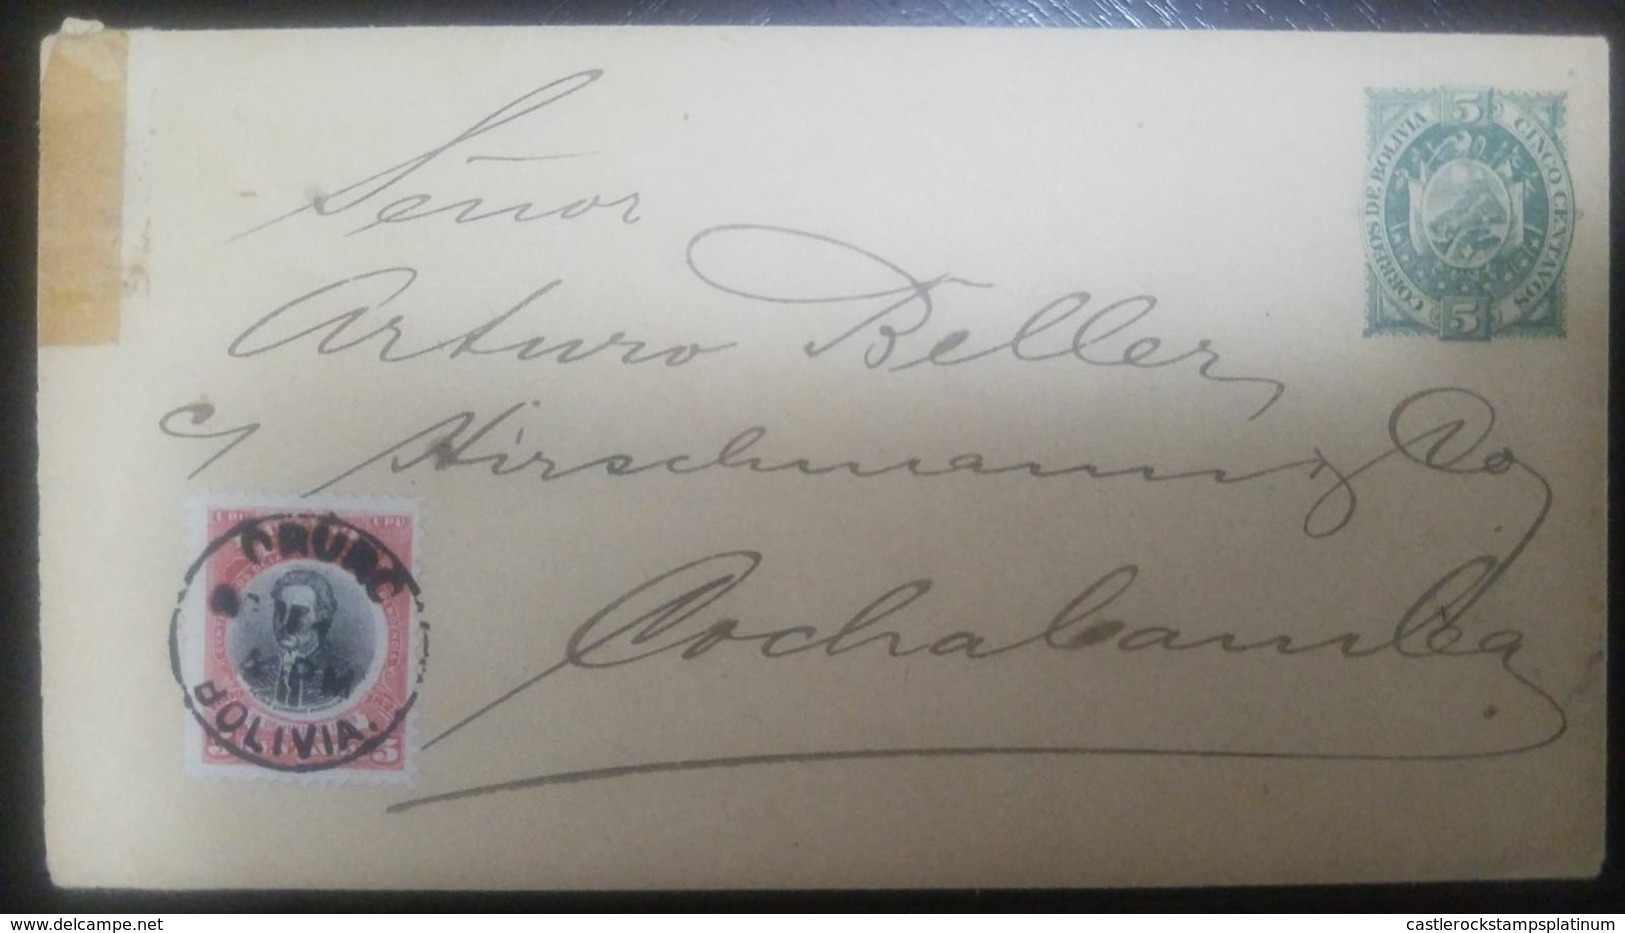 5
CORREOS DE BOLIVIA
CINCO CENTAVOS
5
Señor
Arturo Beller,
c/ Hirschmann y Co,
Cochabamba
ORURO
BOLIVIA.
5 5
delcampe.net
castlerockstampsplatinum